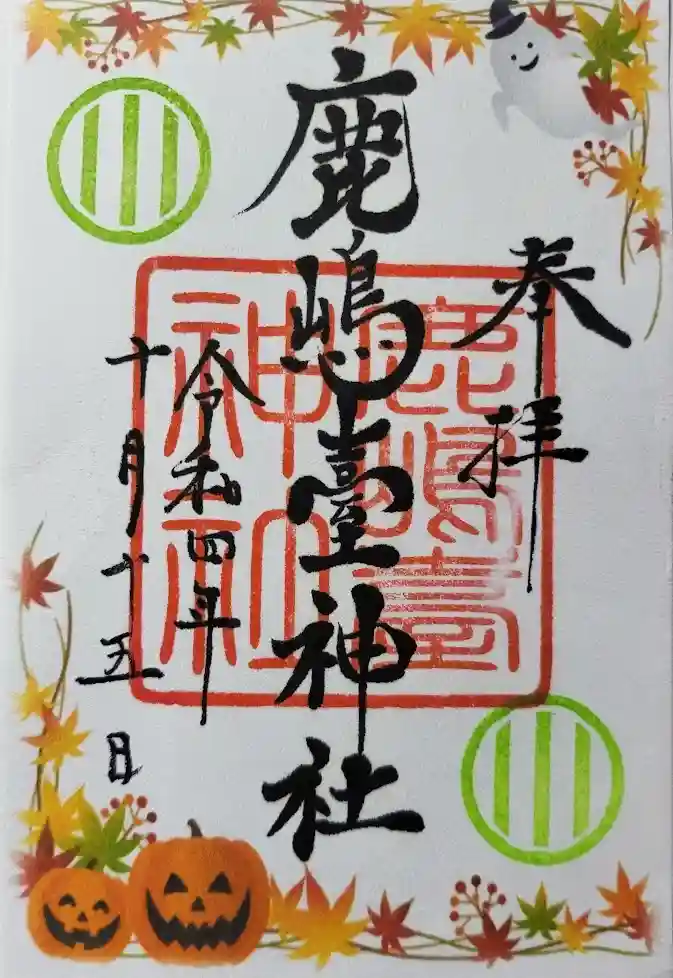 奉拝
鹿嶋臺神社
鹿嶋臺
神社
令和四年
十月十五日